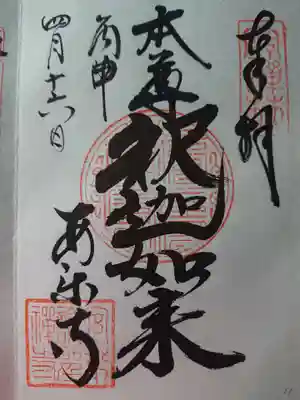 奉拝
本尊
釈迦如来
丙申
四月十六日
安楽寺